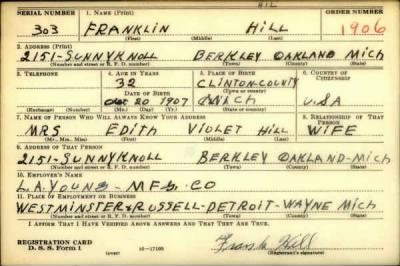 HIL
SERIAL NUMBER 1. NAME (Print) ORDER NUMBER
303 FRANKLIN HILL 1906
(First) (Middle) (Last)
2. ADDRESS (Print)
2151-SUNNYKNOLL BERKLEY OAKLAND MICH
(Number and street or R. F. D. number) (Town) (County) (State)
3. TELEPHONE 4. AGE IN YEARS 5. PLACE OF BIRTH 6. COUNTRY OF CITIZENSHIP
32 CLINTON-COUNTY
DATE OF BIRTH (Town or county)
Oct 20 1907 MICH USA
(Exchange) (Number) (Mo.) (Day) (Yr.) (State or country)
7. NAME OF PERSON WHO WILL ALWAYS KNOW YOUR ADDRESS 8. RELATIONSHIP OF THAT PERSON
MRS EDITH VIOLET HILL WIFE
(Mr., Mrs., Miss) (First) (Middle) (Last)
9. ADDRESS OF THAT PERSON
2151-SUNNYKNOLL BERKLEY OAKLAND-MICH
(Number and street or R. F. D. number) (Town) (County) (State)
10. EMPLOYER'S NAME
L.A. YOUNG - MFG. CO
11. PLACE OF EMPLOYMENT OR BUSINESS
WESTMINSTER & RUSSELL-DETROIT-WAYNE MICH
(Number and street or R. F. D. number) (Town) (County) (State)
I AFFIRM THAT I HAVE VERIFIED ABOVE ANSWERS AND THAT THEY ARE TRUE.
REGISTRATION CARD
D. S. S. Form 1 (over) 16-17105 Frank Hill
(Registrant's signature)